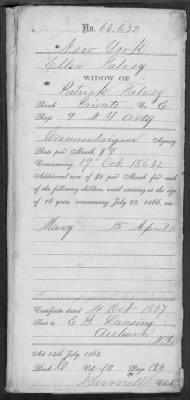 No. 66,632
New York
Ellen
WIDOW OF
Patrick
Rank Private Co. E
Regt 9 N Y Arty
Canandaigua Agency
Rate per Month, $8
Commencing 19th Oct 1864
Additional sum of $2 per Month for each
of the following children, until arriving at the age
of 16 years, commencing July 25, 1866, viz:
Mary 15 April
Certificate dated 4 Oct 1867
Sent to E B Lansing
Auburn
N.Y.
Act 14th July, 1862.
Book Vol. 10 Page 126
Clerk.